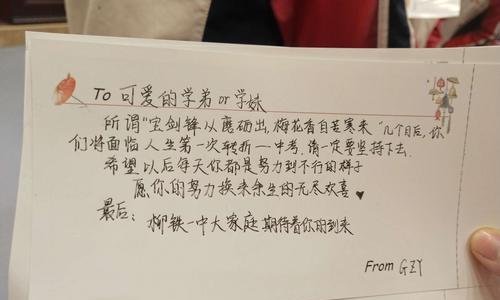 To 可爱的学弟 or 学妹
所谓“宝剑锋从磨砺出，梅花香自苦寒来”几个月后，你
们将面临人生第一次转折—中考，请一定要坚持下去.
希望以后每天你都是努力到不行的样子
愿你的努力换来余生的无尽欢喜♥
最后：
柳铁一中大家庭期待着你的到来
From GZY